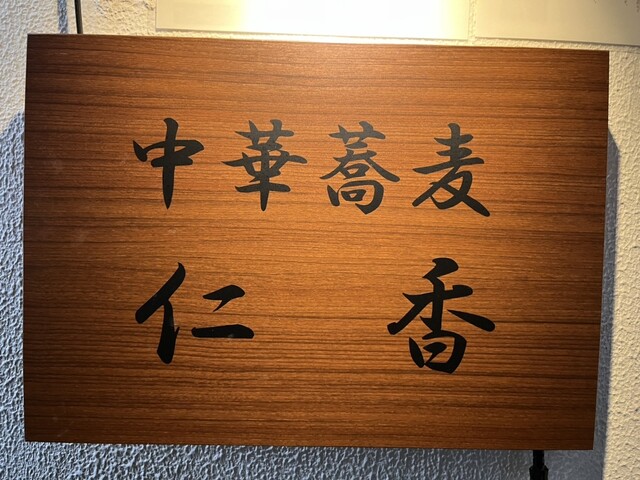 中華蕎麦
仁香